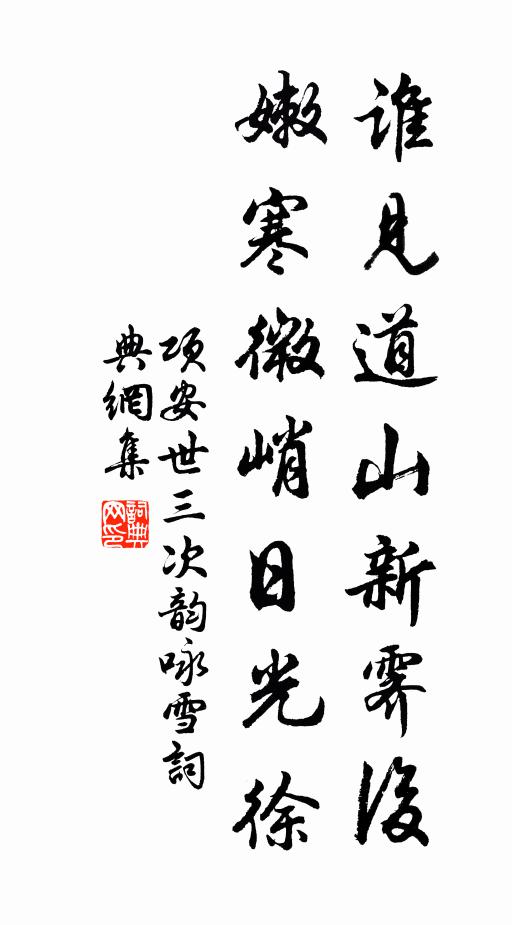 誰見道山新霽後
嫩寒微峭日光徐
項安世三次韵咏雪詞
典網集
詞典
网印